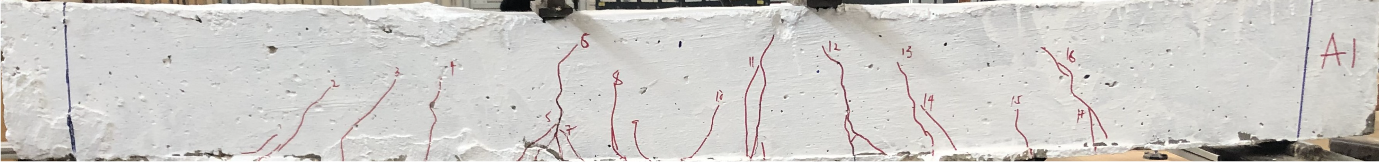 2
3
4
5
6
7
8
9
10
11
1
12
13
14
15
16
17
A1